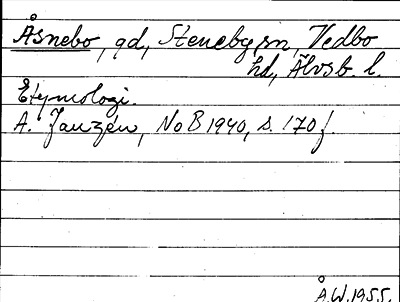 Åsnebo, gd, Steneby sn, Vedbo
hd, Älvsb. l.
Etymologi.
A. Janzén, NoB 1940, s. 170 f.
Å.W. 1955.